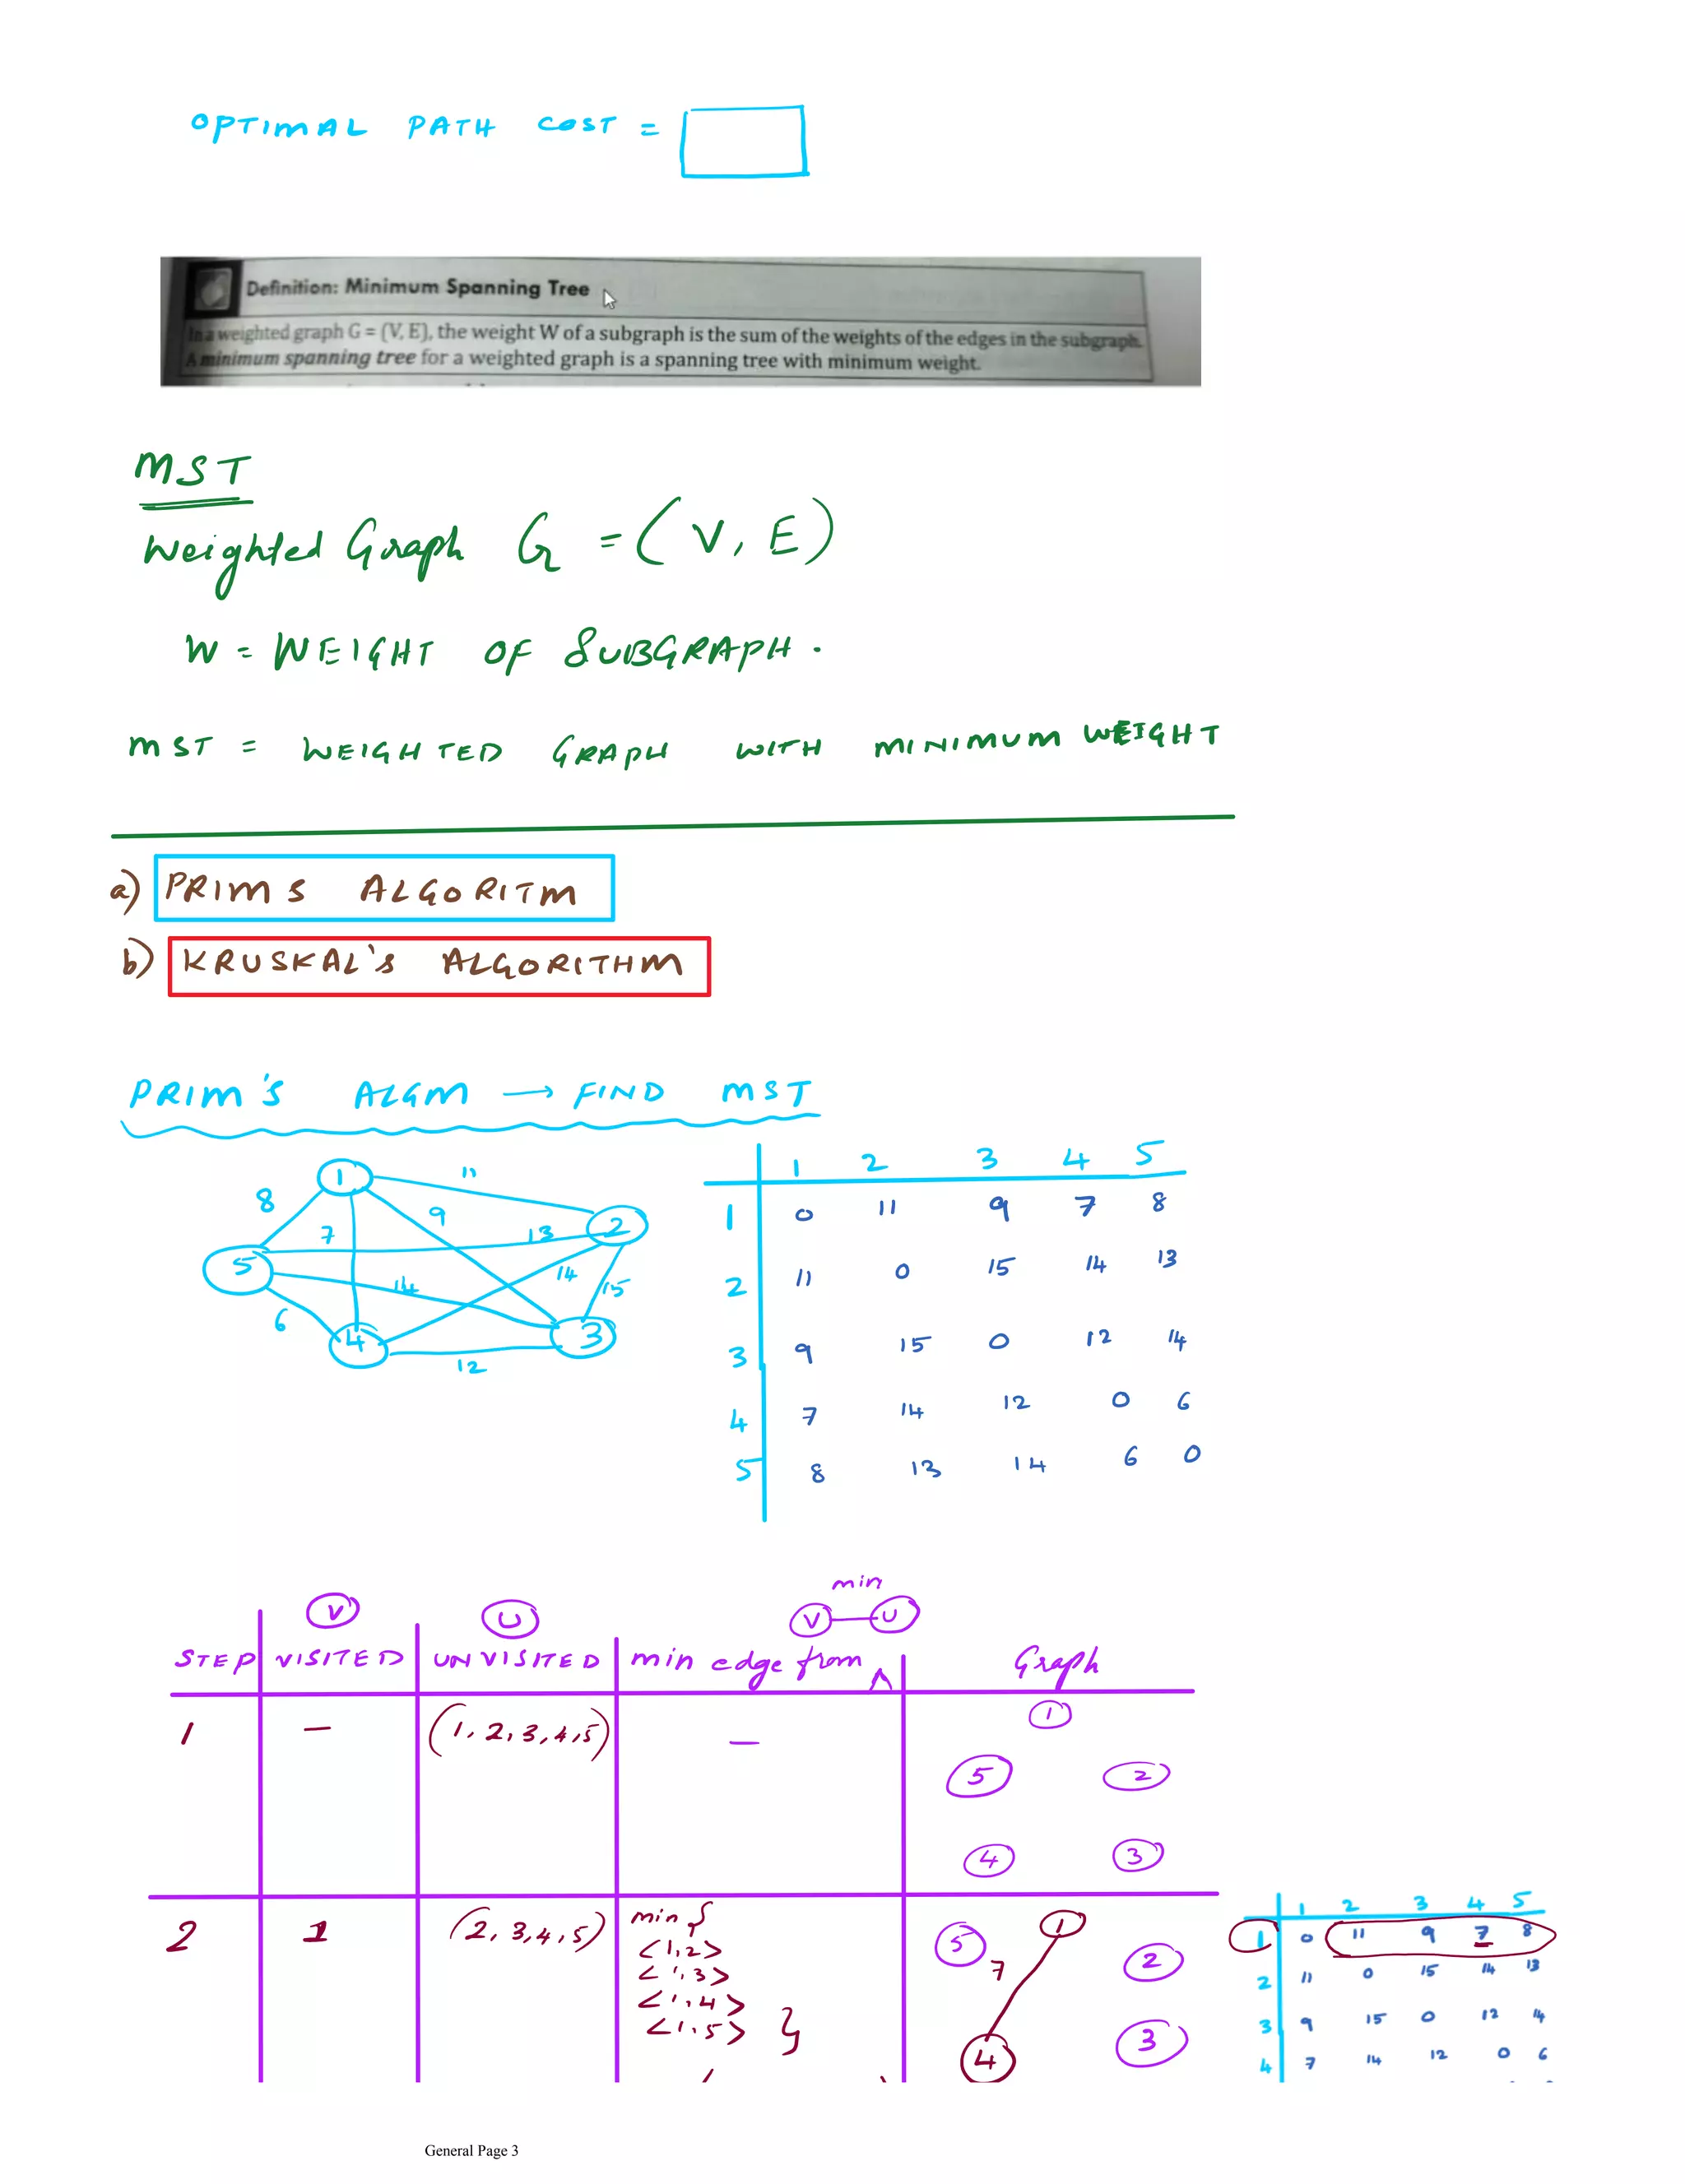 OPTIMAL PATH COST =
Definition: Minimum Spanning Tree
In a weighted graph G = (V, E), the weight W of a subgraph is the sum of the weights of the edges in the subgraph.
A minimum spanning tree for a weighted graph is a spanning tree with minimum weight.
MST
Weighted Graph G = (V, E)
W = WEIGHT OF SUBGRAPH.
MST = WEIGHTED GRAPH WITH MINIMUM WEIGHT
a) PRIMS ALGORITM
b) KRUSKAL'S ALGORITHM
PRIM'S ALGM → FIND MST
1 11
8 9 2
7 13
5 14 14 15
6 4 3
12
1 2 3 4 5
1 0 11 9 7 8
2 11 0 15 14 13
3 9 15 0 12 14
4 7 14 12 0 6
5 8 13 14 6 0
min
V U V U
STEP VISITED UNVISITED min edge from Graph
1 — (1,2,3,4,5) — 1
5 2
4 3
2 1 (2,3,4,5) min {
<1,2>
<1,3>
<1,4>
<1,5> }
1
5 7 2
4 3
1 2 3 4 5
1 0 11 9 7 8
2 11 0 15 14 13
3 9 15 0 12 14
4 7 14 12 0 6
General Page 3